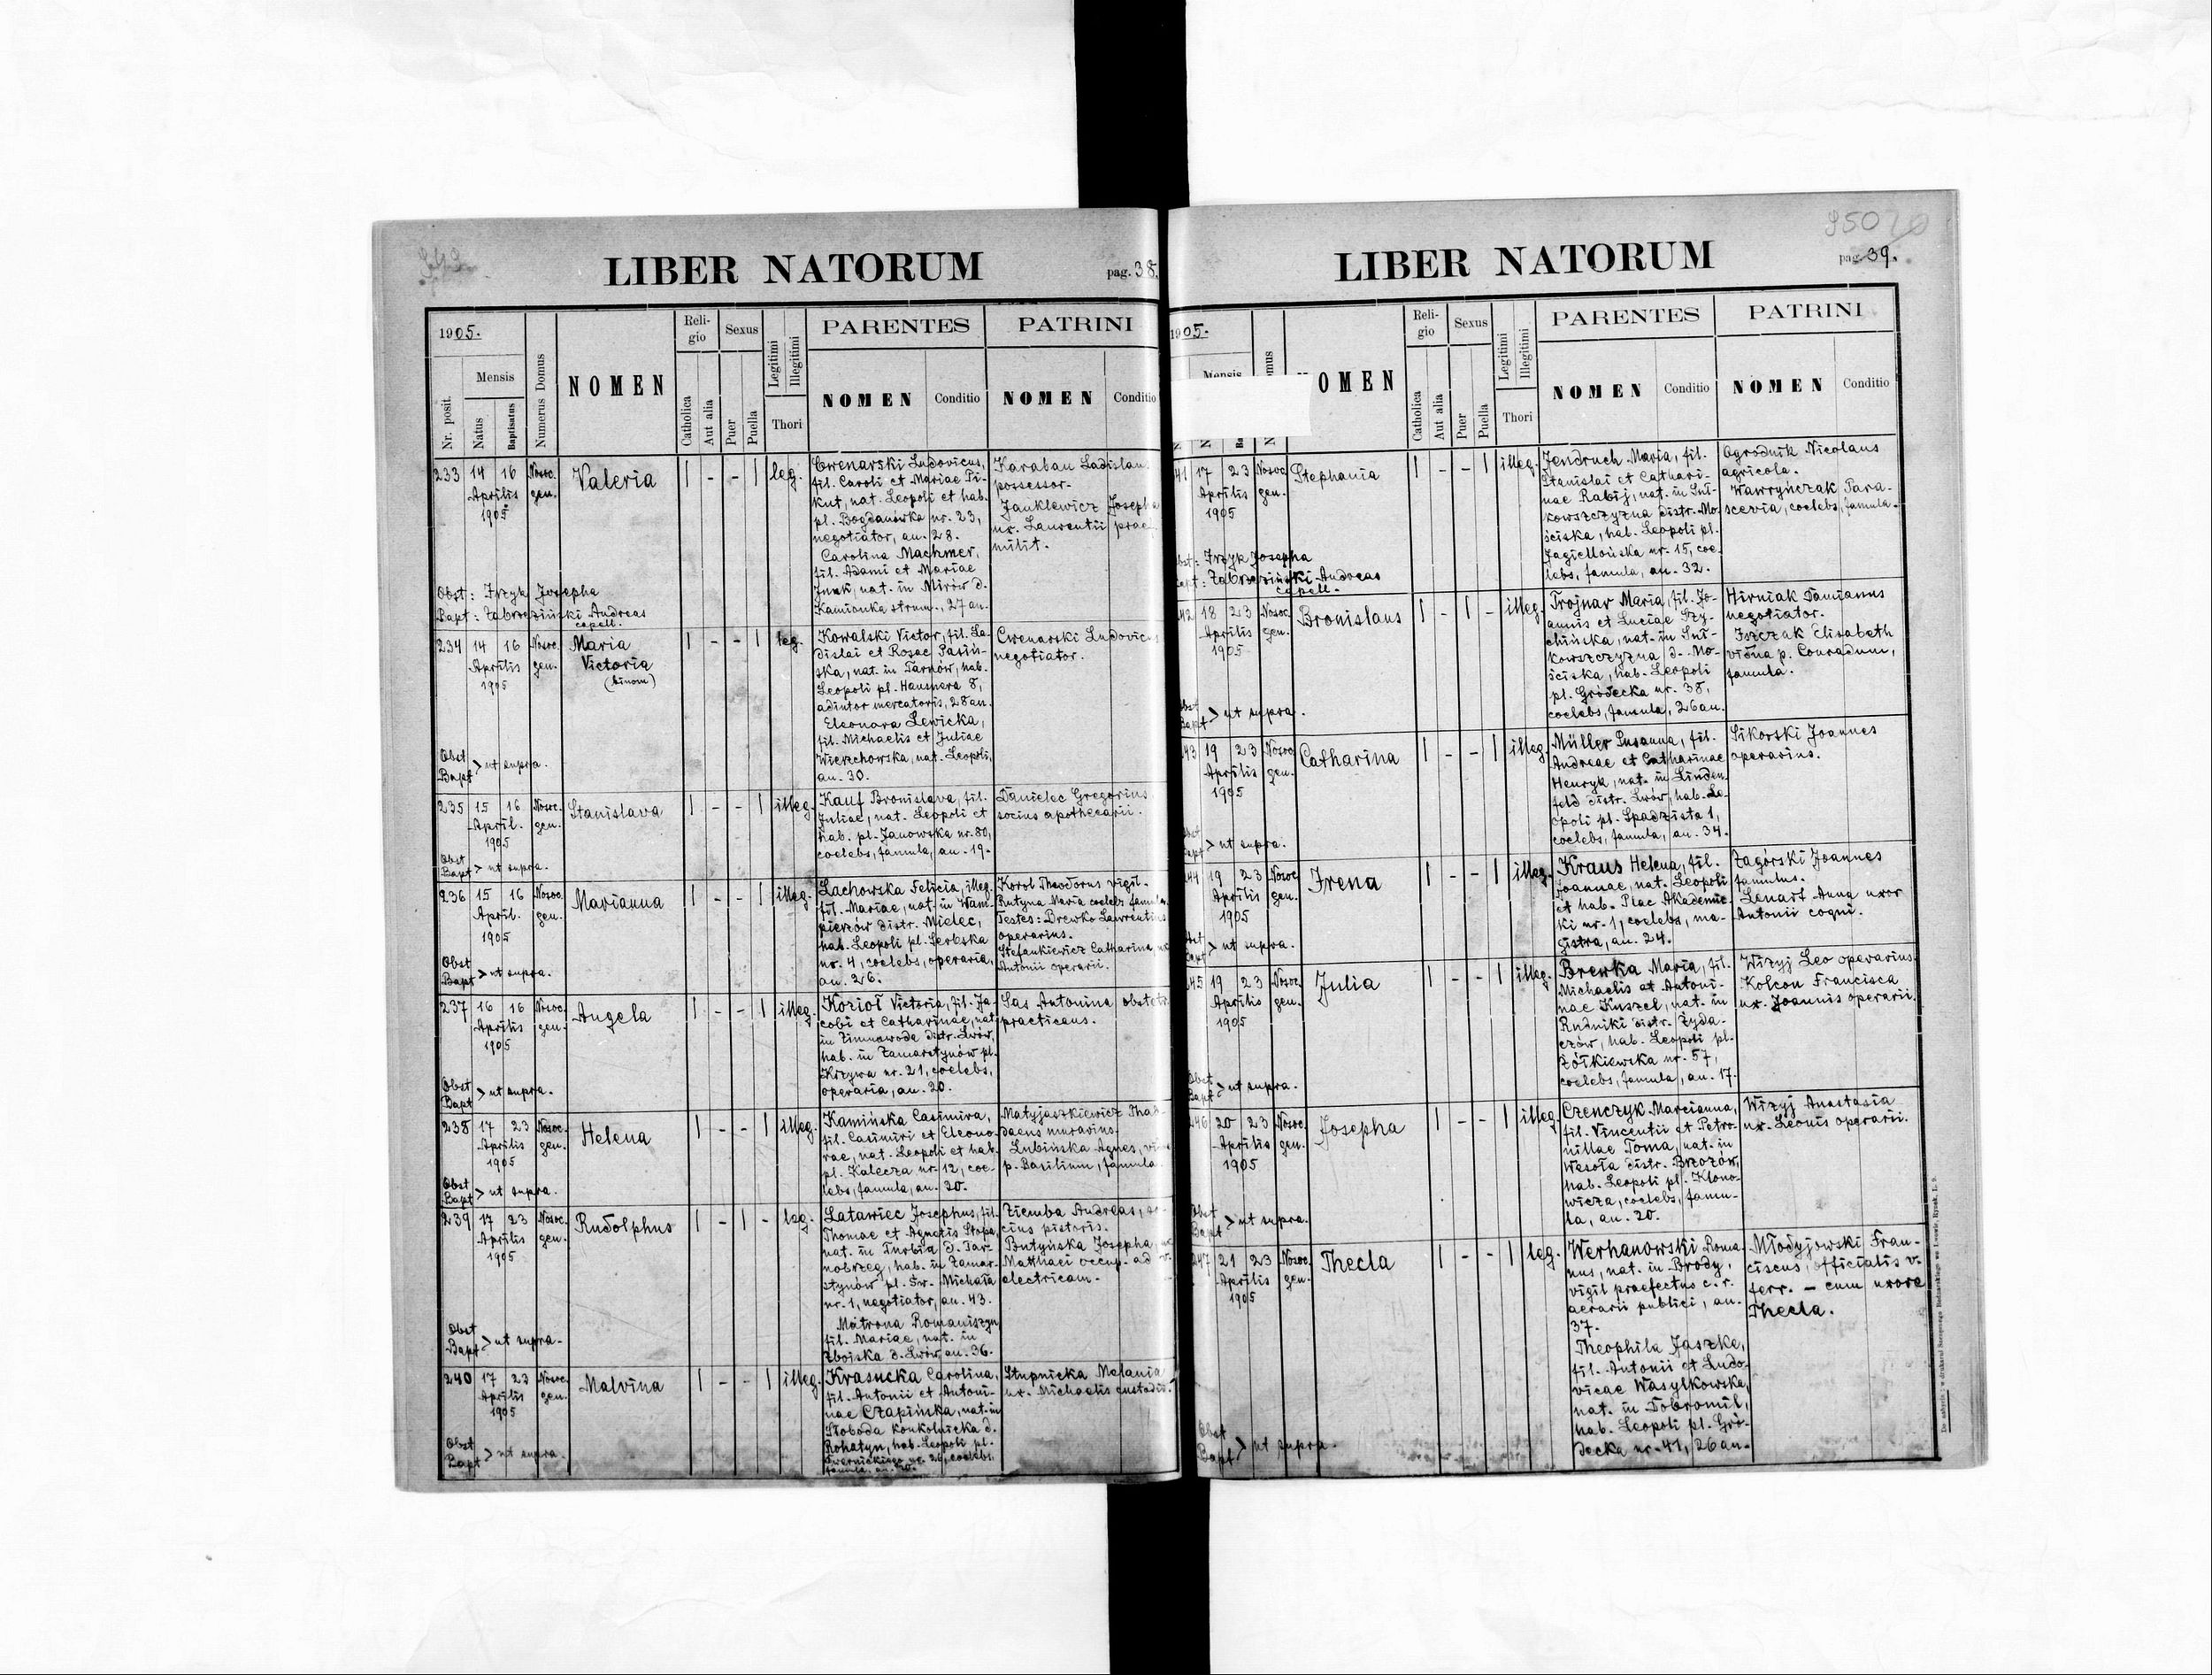 LIBER NATORUM
pag. 38.
1905.
Nr. posit.
Mensis
Natus
Baptisatus
Numerus Domus
NOMEN
Reli-
gio
Catholica
Aut alia
Sexus
Puer
Puella
Legitimi
Illegitimi
Thori
PARENTES
NOMEN
Conditio
PATRINI
NOMEN
Conditio
233 14 16 Aprilis 1905 Nosoc. gen.
Valeria
| - - | leg.
Cwenarski Ludovicus,
fil. Caroli et Mariae Pi-
kut, nat. Leopoli et hab.
pl. Bogdanówka nr. 23,
negotiator, an. 28.
Carolina Machmer,
fil. Adami et Mariae
nat. in Mirów d.
Kamionka strum., 27 an.
Karaban Ladislaus
possessor.
Janklewicz Josepha
ux. Laurentii prae
milit.
Obst: Fryzyk Josepha
Bapt: Zabrzeziński Andreas
capell.
234 14 16 Aprilis 1905 Nosoc. gen.
Maria
Victoria
(binom)
| - - | leg.
Kowalski Victor, fil. La-
dislai et Rosae Pasiń-
ska, nat. in Tarnów, hab.
Leopoli pl. Hausnera 8,
adiutor mercatoris, 28 an.
Eleonora Lewicka,
fil. Michaelis et Juliae
Wierzchowska, nat. Leopoli,
an. 30.
Cwenarski Ludovicus
negotiator.
Obst
Bapt > ut supra.
235 15 16 April. 1905 Nosoc. gen.
Stanislava
| - - | illeg.
Kauf Bronislava, fil.
Juliae, nat. Leopoli et
hab. pl. Janowska nr. 80,
coelebs, famula, an. 19.
Danielec Gregorius
socius apothecarii.
Obst
Bapt > ut supra.
236 15 16 April. 1905 Nosoc. gen.
Marianna
| - - | illeg.
Lachowska Felicia, illeg.
fil. Mariae, nat. in Wam-
pierzów distr. Mielec,
hab. Leopoli pl. Serbska
nr. 4, coelebs, operaria,
an. 26.
Korol Theodorus vigil.
Rutyna Maria coelebs famula.
Testes: Drewko Laurentius
operarius.
Stefankiewicz Catharina ux.
Antonii operarii.
Obst
Bapt > ut supra.
237 16 16 Aprilis 1905 Nosoc. gen.
Angela
| - - | illeg.
Kozioł Victoria, fil. Ja-
cobi et Catharinae, nat.
in Zimnawoda distr. Lwów,
hab. in Zamarstynów pl.
Krzywa nr. 21, coelebs,
operaria, an. 20.
Sas Antonina obstetr.
practicans.
Obst
Bapt > ut supra.
238 17 23 Aprilis 1905 Nosoc. gen.
Helena
| - - | illeg.
Kamińska Casimira,
fil. Casimiri et Eleono-
rae, nat. Leopoli et hab.
pl. Kalecza nr. 12, coe-
lebs, famula, an. 30.
Matyjaszkiewicz Thad-
daeus murarius.
Lubińska Agnes, vidua
p. Basilium, famula.
Obst
Bapt > ut supra.
239 17 23 Aprilis 1905 Nosoc. gen.
Rudolphus
| - | - leg.
Latawiec Josephus, fil.
Thomae et Agnetis Stopa,
nat. in Turbia d. Tar-
nobrzeg, hab. in Zamar-
stynów pl. Św. Michała
nr. 1, negotiator, an. 43.
Matrona Romaniszyn
fil. Mariae, nat. in
Zboiska d. Lwów, an. 36.
Ziemba Andreas, so-
cius pistoris.
Butyńska Josepha ux.
Matthaei occup. ad v.
electricam.
Obst
Bapt > ut supra.
240 17 23 Aprilis 1905 Nosoc. gen.
Malvina
| - - | illeg.
Krasucka Carolina,
fil. Antonii et Antoni-
nae Czapińska, nat. in
Słoboda Konkolnicka d.
Rohatyn, hab. Leopoli pl.
coelebs,
famula, an.
Stupnicka Melania
ux. Michaelis custodis.
Obst
Bapt > ut supra.
LIBER NATORUM
950
pag. 39.
1905.
Mensis
OMEN
Reli-
gio
Catholica
Aut alia
Sexus
Puer
Puella
Legitimi
Illegitimi
Thori
PARENTES
NOMEN
Conditio
PATRINI
NOMEN
Conditio
41 17 23 Aprilis 1905 Nosoc. gen.
Stephania
| - - | illeg.
Jendruch Maria, fil.
Stanislai et Cathari-
nae Rabij, nat. in Śni-
kowszczyzna distr. Mo-
ściska, hab. Leopoli pl.
Jagiellońska nr. 15, coe-
lebs, famula, an. 32.
Ogrodnik Nicolaus
agricola.
Wawryńczak Para-
scevia, coelebs, famula.
Obst: Fryzyk Josepha
Bapt: Zabrzeziński Andreas
capell.
42 18 23 Aprilis 1905 Nosoc. gen.
Bronislaus
| - | - illeg.
Trojnar Maria, fil. Jo-
annis et Luciae Szy-
chińska, nat. in Śni-
kowszczyzna d. Mo-
ściska, hab. Leopoli
pl. Gródecka nr. 38,
coelebs, famula, 26 an.
Hirniak Damianus
negotiator.
Iszczak Elisabeth
vidua p. Conradum,
famula.
Obst
Bapt > ut supra.
43 19 23 Aprilis 1905 Nosoc. gen.
Catharina
| - - | illeg.
Müller Susanna, fil.
Andreae et Catharinae
Henryk, nat. in Linden-
feld distr. Lwów, hab. Le-
opoli pl. Spadzista 1,
coelebs, famula, an. 34.
Sikorski Joannes
operarius.
Obst
Bapt > ut supra.
44 19 23 Aprilis 1905 Nosoc. gen.
Irena
| - - | illeg.
Kraus Helena, fil.
Joannae, nat. Leopoli
et hab. Plac Akademic-
ki nr. 1, coelebs, ma-
gistra, an. 24.
Zagórski Joannes
famulus.
Lenart Anna uxor
Antonii cogni.
Obst
Bapt > ut supra.
45 19 23 Aprilis 1905 Nosoc. gen.
Julia
| - - | illeg.
Brewka Maria, fil.
Michaelis et Antoni-
nae Kuszel, nat. in
Rudniki distr. Żyda-
czów, hab. Leopoli pl.
Żółkiewska nr. 57,
coelebs, famula, an. 17.
Wizyj Leo operarius.
Kolcon Francisca
ux. Joannis operarii.
Obst
Bapt > ut supra.
246 20 23 Aprilis 1905 Nosoc. gen.
Josepha
| - - | illeg.
Czenczyk Marcianna,
fil. Vincentii et Petro-
nillae Toma, nat. in
Wesoła distr. Brzozów,
hab. Leopoli pl. Klono-
wicza, coelebs, famu-
la, an. 20.
Wizyj Anastasia
ux. Leonis operarii.
Obst
Bapt > ut supra.
247 21 23 Aprilis 1905 Nosoc. gen.
Thecla
| - - | leg.
Werhanowski Roma-
nus, nat. in Brody,
vigil praefectus c. r.
aerarii publici, an.
37.
Theophila Jaszke,
fil. Antonii et Ludo-
vicae Wasylkowska,
nat. in Dobromil,
hab. Leopoli pl. Gró-
decka nr. 41, 26 an.
Młodyjowski Fran-
ciscus, officialis v.
ferr. - cum uxore
Thecla.
Obst
Bapt > ut supra.